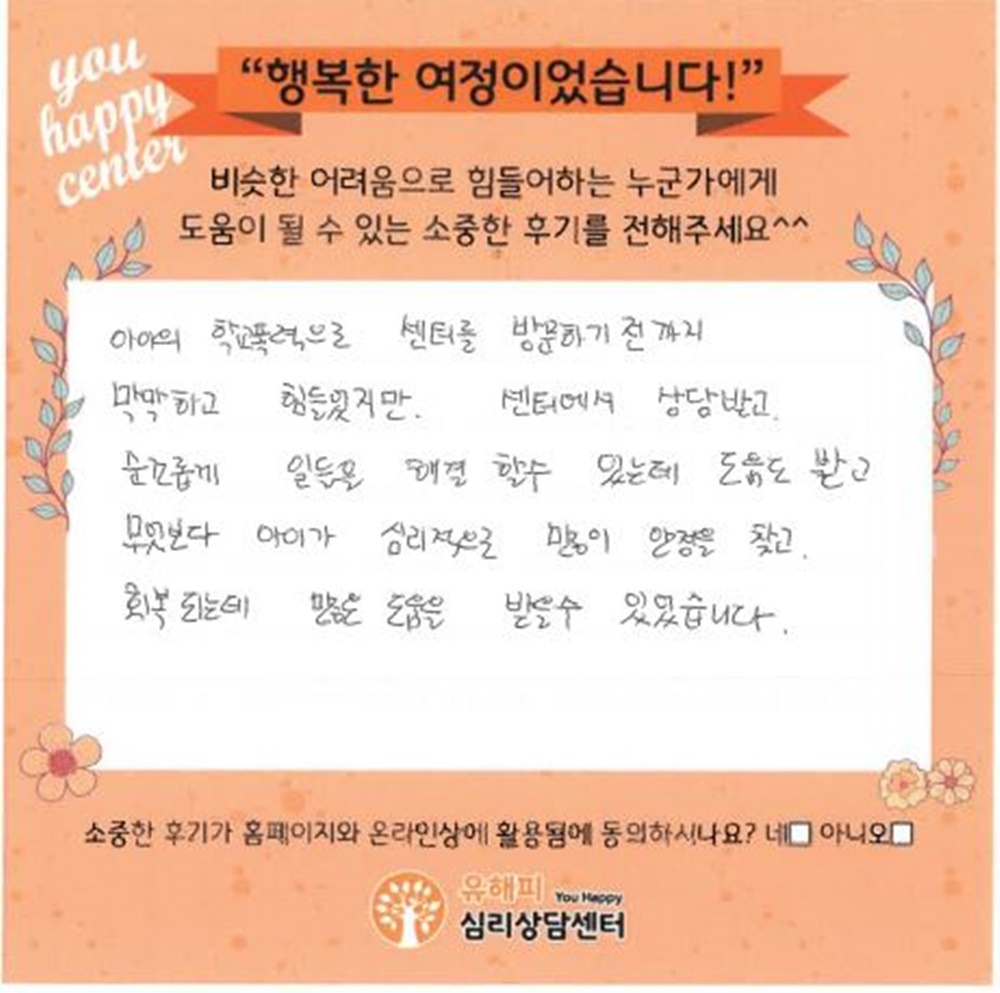 you
happy
center
“행복한 여정이었습니다!”
비슷한 어려움으로 힘들어하는 누군가에게
도움이 될 수 있는 소중한 후기를 전해주세요^^
아이의 학교폭력으로 센터를 방문하기 전까지
막막하고 힘들었지만. 센터에서 상담받고.
순조롭게 일들을 해결 할수 있는데 도움도 받고
무엇보다 아이가 심리적으로 많이 안정을 찾고.
회복되는데 많은 도움을 받을수 있었습니다.
소중한 후기가 홈페이지와 온라인상에 활용됨에 동의하시나요? 네□ 아니오□
유해피 You Happy
심리상담센터